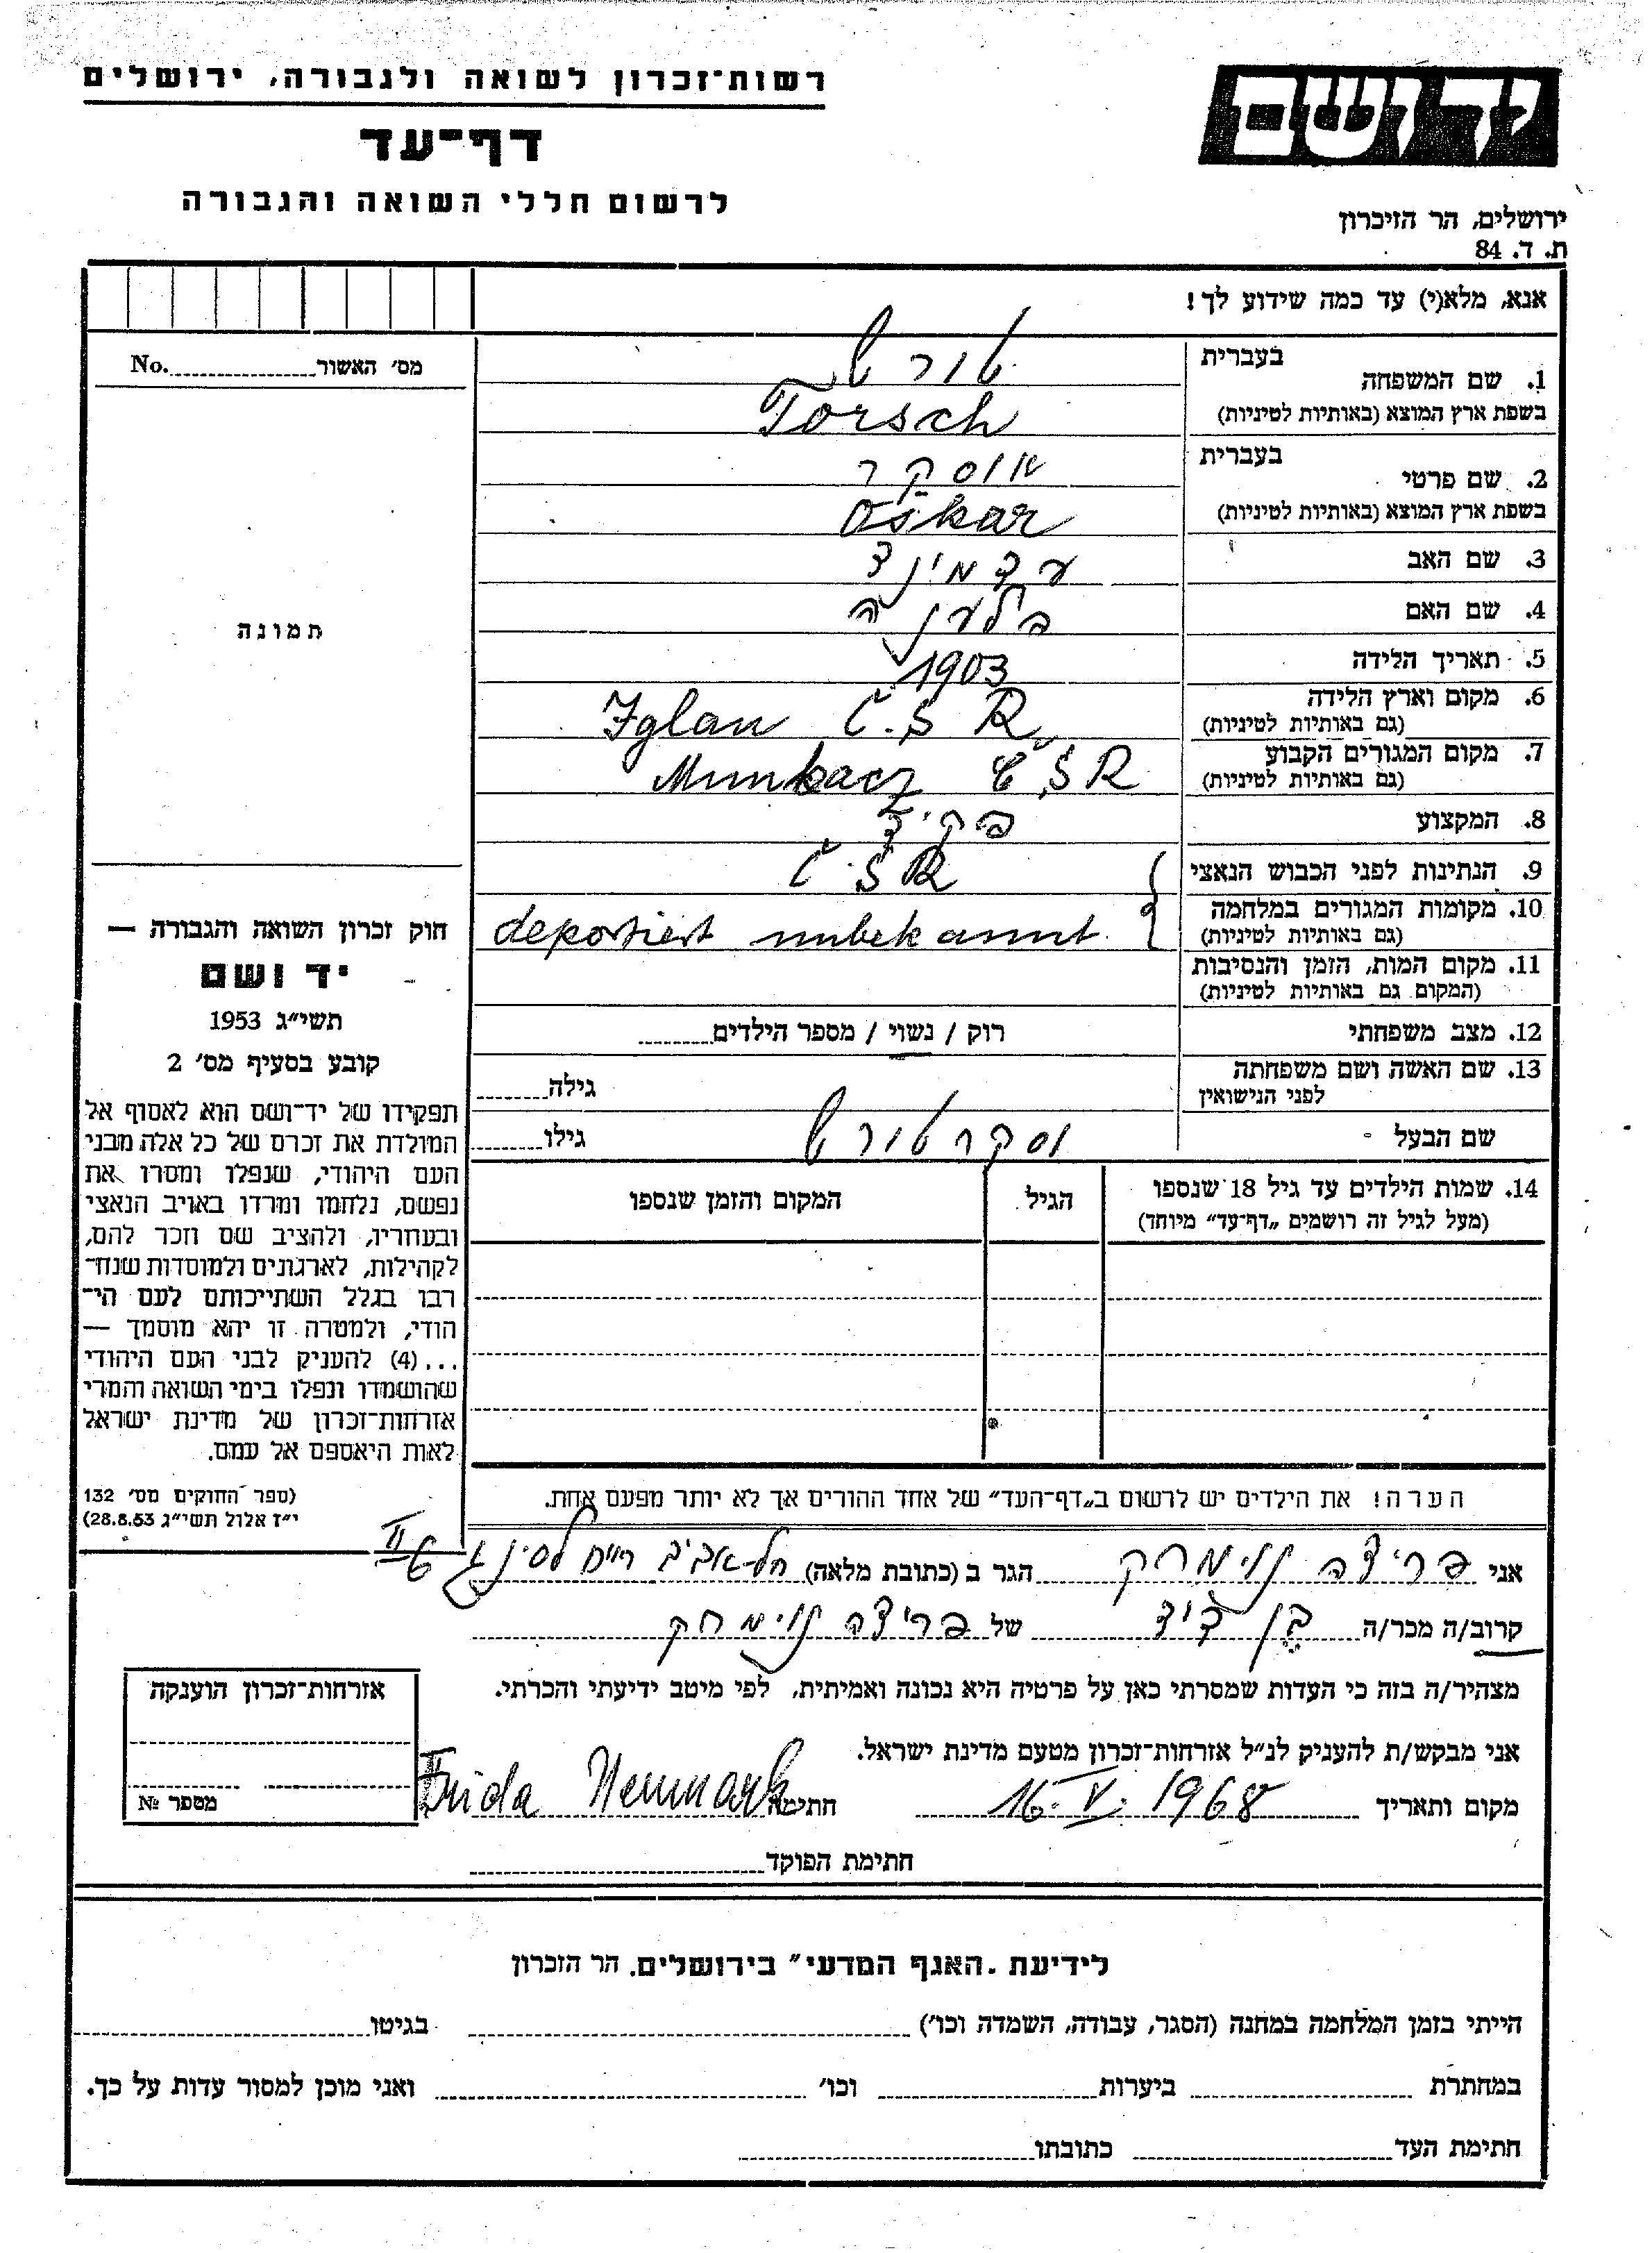 רשות־זכרון לשואה ולגבורה, ירושלים
דף־עד
לרשום חללי השואה והגבורה
יד ושם
ירושלים, הר הזיכרון
ת. ד. 84
אנא, מלא(י) עד כמה שידוע לך!
מס׳ האשור No.
תמונה
בעברית
1. שם המשפחה טורש
בשפת ארץ המוצא (באותיות לטיניות) Torsch
בעברית
2. שם פרטי אוסקר
בשפת ארץ המוצא (באותיות לטיניות) Oskar
3. שם האב
4. שם האם
5. תאריך הלידה 1903
6. מקום וארץ הלידה Iglau Č.S.R.
(גם באותיות לטיניות)
7. מקום המגורים הקבוע Munkacz ČSR
(גם באותיות לטיניות)
8. המקצוע פקיד
9. הנתינות לפני הכבוש הנאצי ČSR
10. מקומות המגורים במלחמה deportiert unbekannt
(גם באותיות לטיניות)
11. מקום המות, הזמן והנסיבות
(המקום גם באותיות לטיניות)
12. מצב משפחתי רוק / נשוי / מספר הילדים
13. שם האשה ושם משפחתה גילה
לפני הנישואין
שם הבעל וסקר טורש גילו
14. שמות הילדים עד גיל 18 שנספו הגיל המקום והזמן שנספו
(מעל לגיל זה רושמים „דף־עד״ מיוחד)
חוק זכרון השואה והגבורה —
יד ושם
תשי״ג 1953
קובע בסעיף מס׳ 2
תפקידו של יד־ושם הוא לאסוף אל
המולדת את זכרם של כל אלה מבני
העם היהודי, שנפלו ומסרו את
נפשם, נלחמו ומרדו באויב הנאצי
ובעוזריו, ולהציב שם וזכר להם,
לקהילות, לארגונים ולמוסדות שנח־
רבו בגלל השתייכותם לעם הי־
הודי, ולמטרה זו יהא מוסמך —
...(4) להעניק לבני העם היהודי
שהושמדו ונפלו בימי השואה והמרי
אזרחות־זכרון של מדינת ישראל
לאות היאספם אל עמם.
(ספר החוקים מס׳ 132
י״ז אלול תשי״ג 28.8.53)
הערה! את הילדים יש לרשום ב„דף־העד״ של אחד ההורים אך לא יותר מפעם אחת.
אני פרידה נוימרק הגר ב (כתובת מלאה) תל-אביב
קרוב/ה מכר/ה בן דוד של פרידה נוימרק
מצהיר/ה בזה כי העדות שמסרתי כאן על פרטיה היא נכונה ואמיתית, לפי מיטב ידיעתי והכרתי.
אני מבקש/ת להעניק לנ״ל אזרחות־זכרון מטעם מדינת ישראל.
מקום ותאריך 16.V.1968 חתימה Frida Neumark
חתימת הפוקד
אזרחות־זכרון הוענקה
מספר №
לידיעת „האגף המדעי״ בירושלים, הר הזכרון
הייתי בזמן המלחמה במחנה (הסגר, עבודה, השמדה וכו׳) בגיטו
במחתרת ביערות וכו׳ ואני מוכן למסור עדות על כך.
חתימת העד כתובתו